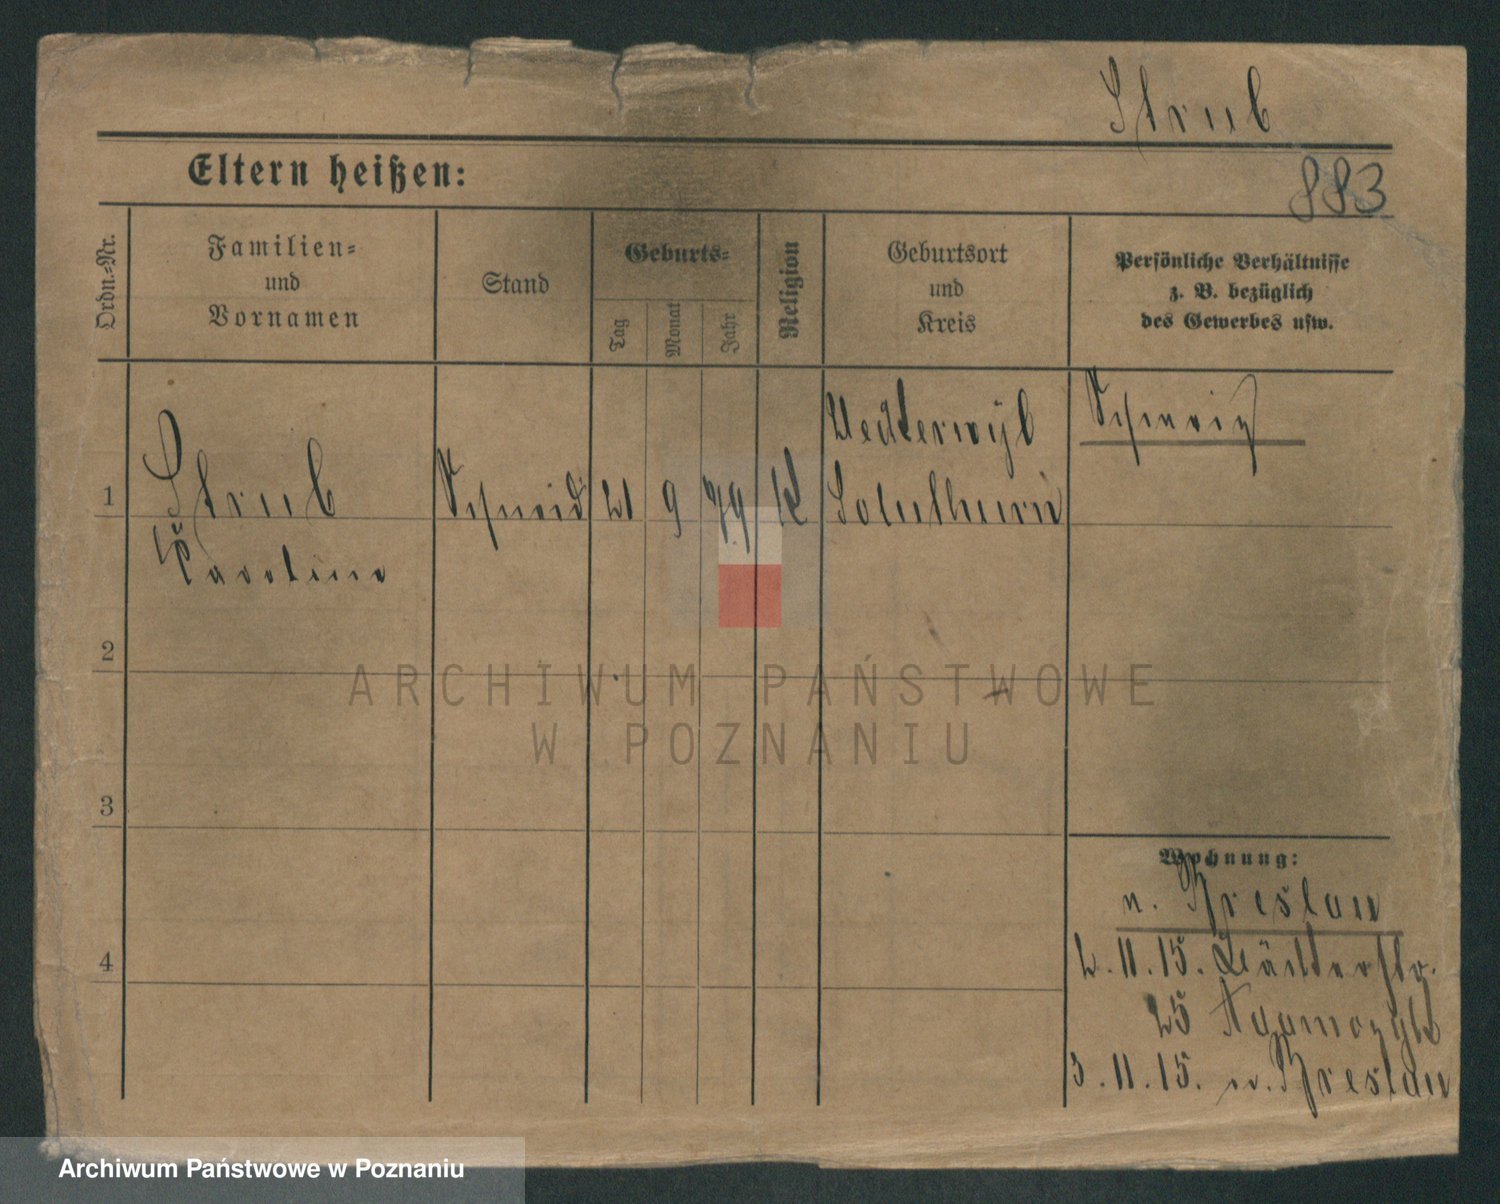 Strub
Eltern heißen:
883
Ordn.-Nr.
Familien-
und
Vornamen
Stand
Geburts-
Tag
Monat
Jahr
Religion
Geburtsort
und
Kreis
Persönliche Verhältnisse
z. B. bezüglich
des Gewerbes usw.
Schweiz
1
Strub
21
9
79
K
Solothurn
Caroline
2
ARCHIWUM PAŃSTWOWE
W POZNANIU
3
Wohnung:
n. Breslau
4
2.11.15.
25
3.11.15. n. Breslau
Archiwum Państwowe w Poznaniu